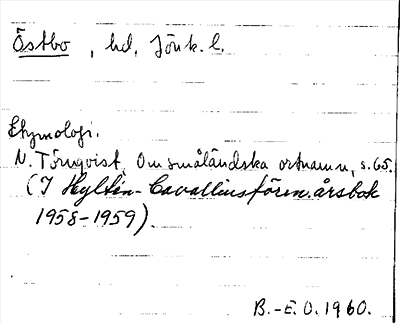 Östbo, hd, Jönk. l.
Etymologi.
N. Törnqvist, Om småländska ortnamn, s. 65.
(I Hyltén-Cavalliusfören. årsbok
1958-1959).
B.-E. O. 1960.